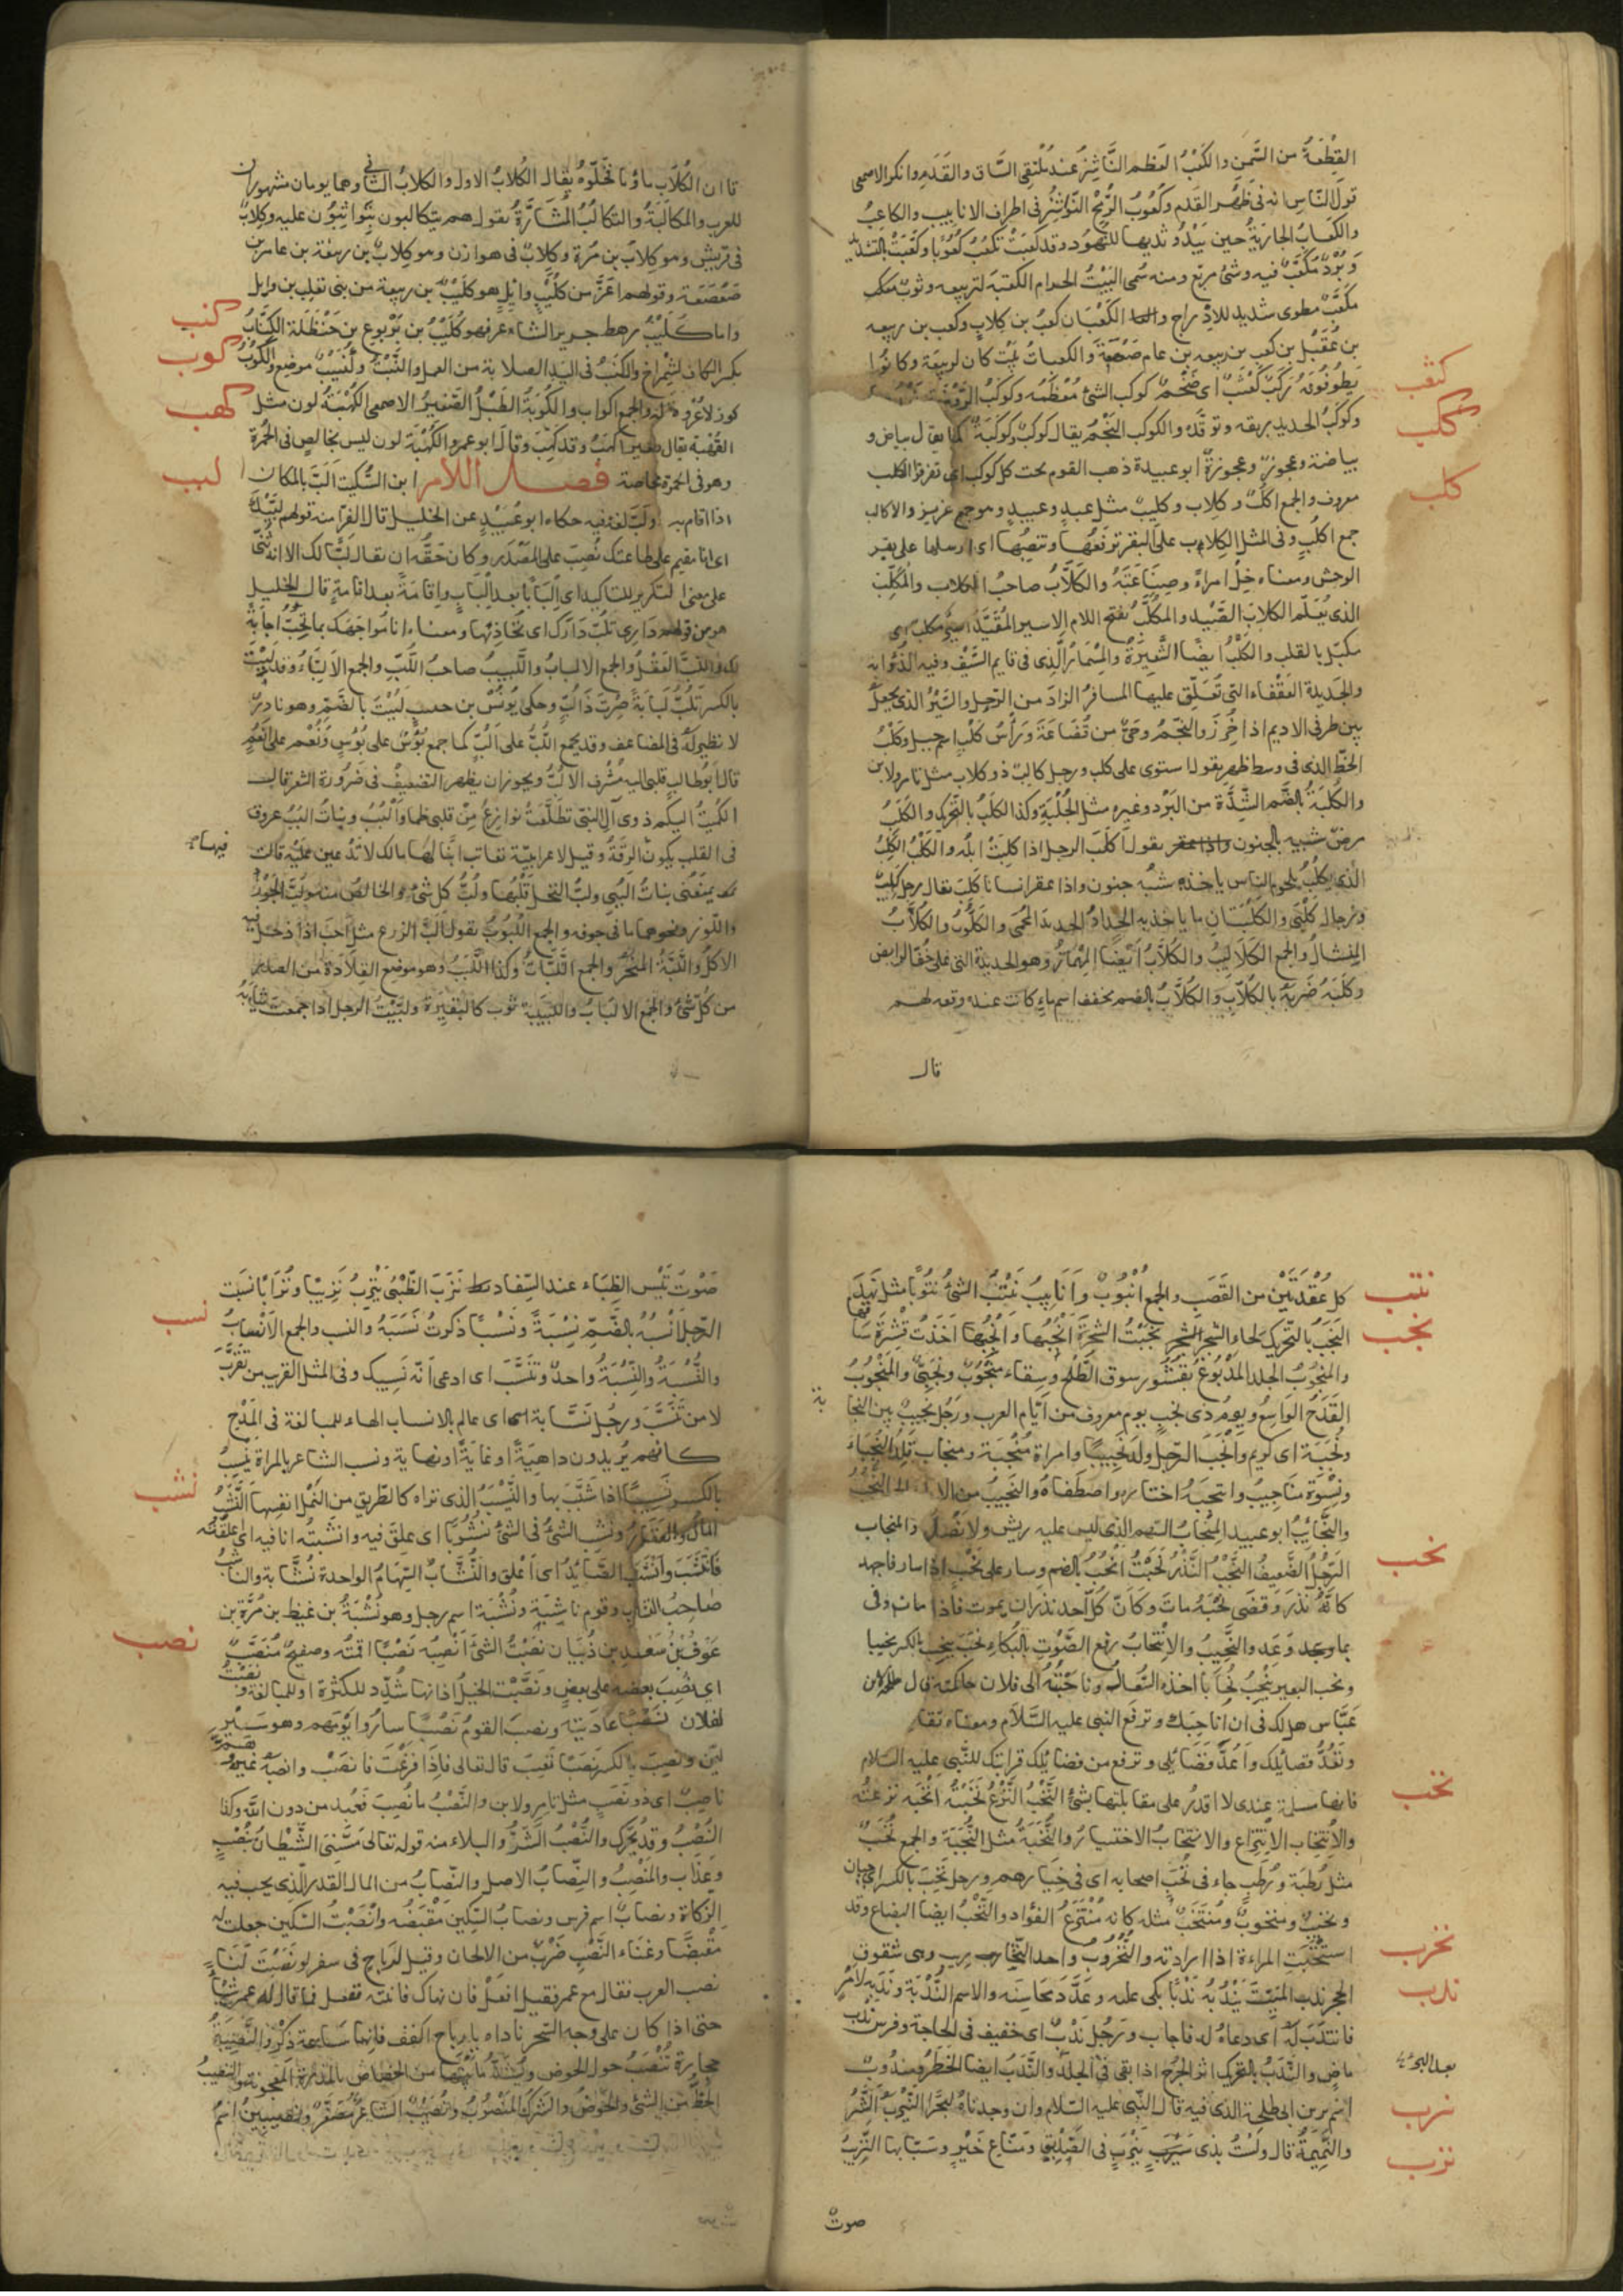 القِطْعَةُ من السَّمن والكَعْبُ العَظم النَّاشِزُ عندَ مُلتقى السَّاق والقَدَم وانكر الاصمعى
قولَ النَّاسِ انه فى ظَهْر القَدَم وكُعُوبُ الرُّمْحِ النَّواشِزُ فى اطراف الانابيب والكاعِبُ
والكَعَابُ الجاريَةُ حين يَبْدُو ثديها للنُهُود وقد كَعَبَتْ تكعُبُ كُعُوبًا وكَعَّبَتْ بالتشديد
وبُرْدٌ مُكَعَّبٌ فيه وشىٌ مربّع ومنه سُمى البَيْتُ الحرام الكَعْبَةَ لتربيعه وثوبٌ
مُكَعَّبٌ مطوى شديد للادراج والكَعْبَان كعبُ بن كلابٍ وكعب بن ربيعه
بن عُقَيْل بن كعب بن ربيعه بن عامر صَعْصَعَةَ والكعباتُ بَيْتٌ كان لربيعَة وكانُوا
يَطُوفُونَ رَكَبٌ كَعْثَبٌ اى ضَخْمٌ كوكب الشئ مُعْظَمُه وكوكبُ الرَّوْضَة
وكوكبُ الحديد بريقه وتوقّده والكوكب النَّجْمُ يقال كوكبٌ وكوكبَةٌ كما يقال بياض و
بياضة وعجوز وعجوزةٌ ابو عبيدة ذهب القوم تحت كل كوكب اى تفرقوا الكلب
معروف والجمع اكلُبٌ وكِلاب وكَليبٌ مثل عبدٍ وعبيدٍ وهو جمع عزيز والاكالب
جمع اكلُبٍ وفى المثل الكِلاب على البقر ترفَعُها وتنصِبُها اى ارسلها على بقر
الوحش ومعناه خلِّ امراءً وصِناعَتَهُ والكَلَّابُ صاحبُ الكلاب والمُكَلِّبُ
الذى يُعَلّم الكلابَ الصَّيْد والمكَلَّبُ بفتح اللام الاسير المُقَيَّد اسيرٌ مكلبٌ اى
مكبّل بالقلب والكَلْبُ ايضًا الشَّعِيرَةُ والمِسْمَارُ الَّذى فى قايم السَّيْف وفيه الذُؤابه
والحَديدة العَقْفاء التى تُعَلِّق عليها المسافرُ الزادَ من الرَّحل والسَّيْرُ الذى يجعلُ
بين طرفى الاديم اذا خُرِزَ والنَّجمُ وحىٌّ من قُضَاعَةَ ورأسُ كَلْبٍ اسم جبل وكَلْبٌ
الخطّ الذى فى وسط ظهره يقول استوى على كلب ورجل كالبٌ ذو كلاب مثل تامر ولابن
والكُلْبَةُ بالضَّم الشِّدَّة من البَرْد وغيره مثل الجُلْبَةِ وكذا الكَلَبُ بالتَّحرك والكَلَبُ
مرضٌ شبيه بالجنون يقول أكلَبَ الرجل اذا كلِبَتْ ابله والكَلْبُ الكَلِبُ
الَّذى يكلُبُ بلحوم الناس ياخذه شبْهُ جنون واذا عقر انسانا كَلِبَ يقال رجل كَلِبٌ
ورجال كلْبَى والكلْبتَان ما ياخذ به الحدّادُ الحديدَ المُحْمَى والكَلُّوبُ والكُلَّابُ
المِنشالُ والجمع الكَلاَليبُ والكُلَّابُ ايْضًا المِهْمازُ وهو الحديدة التى على خُفِّ الرايض
وكَلَبَهُ ضَرَبَهُ بالكُلَّابِ والكُلَابُ بالضم مخفف اسم ماءٍ كانت عنده وقعه لهم
قال
كعثب
ككب
كلب
قا ان الكُلاَب ماؤنا فخَلّوهُ يقال الكُلابُ الاول والكلابُ الثانى وهما يومان مشهوران
للعرب والمكالَبَةُ والتكالُبُ المُشَارَّةُ يقول هم يتكالبون يَتَواثَبُون عليه وكِلابٌ
فى قريش وهو كلابُ بن مُرّةَ وكِلابٌ فى هوازن وهو كِلابٌ بن ربيعَة بن عامر بن
صَعْصَعَة وقولهم اعَزُّ من كُلَيْبِ وايلٍ هو كليْبُ بن ربيعة من بنى تغلِب بن وايل
واما كُلَيْبٌ رهط جرير الشاعر فهو كُلَيْبُ بن يَرْبوع بن حَنْظَلَة الكِنَابُ
بكسر الكاف الشِمْراخ والكَنَبُ فى اليَد الصلابة من العمل والنَّبْتُ وكُنَيْبٌ موضع والكُوْبُ
كوزٌ لا عُرْوَةَ له والجمع اكواب والكُوْبَةُ الطَبْلُ الصَّغيرُ الاصمعى الكُهْبَةُ لون مثل
القُهْبة يقال بعير اكهبُ وقد كهِبَ وقال ابو عمرو الكُهْبَةُ لون ليس بخالص فى الحُمْرة
وهو فى الحمرة خاصة فصل اللام ابن السِّكِيت أَلَبَّ بالمكان
اذا اقام به ولَبَّ لغة فيه حكاه ابو عُبَيْدٍ عن الخليل قال الفرّا منه قولهم لبَّيْكَ
اى انا مقيم على طاعتك نُصِبَ على المَصْدَر وكان حقُّه ان يقال لَبًّا لك الا انه ثُنّى
على معنى التكرير للتاكيد اى اِلْبَابًا بعد اِلْبَابٍ واِقامَةً بعد اقامةٍ قال الخليل
هو من قولهم دارى تلُبُّ دارَك اى تُحاذِيْها ومعناه انا مُواجهَك بما تُحِبُّ اجابةً
لك واللُبُّ العَقْلُ والجمع الالبابُ واللَّبيبُ صاحبُ اللُّبِّ والجمع الاَلِبَّاءُ وقد لبِبْتَ
بالكسر تَلَبُّ لَبابَةً صِرْتَ ذَا لُبٍّ وحكى يُونُسُ بن حبيب لَبُبْتَ بالضَّم وهو نادرٌ
لا نظير لَهُ فى المضاعف وقد يجمع اللُّبُّ على أَلُبٍّ كما جمع بُؤْسٌ على أبْؤُسٍ ونُعْم على أنْعُمٍ
قال ابُو طالبٍ قلبى اليه مُشْرِفُ الألُبِّ ويجوز ان يظهر التضعيفُ فى ضَرورة الشعر قال
الكُمَيْتُ اليكم ذوى آلِ النبىِّ تطلّعَتْ نوازِعُ مِنْ قلبى ظماءٌ وألْبُبُ وبناتُ ألبُبٍ عروق
فى القلب يكون الرقّةُ وقيل لاعرابيّة تعاتب ابْنًا لَهَا مالكِ لا تدْعين عليْه قالت
فيها
يمنعُنى بناتُ ألبُبى ولبُّ النخل قَلْبُها ولُبُّ كلّ شئٍ والخالصُ منه ولُبُّ الجَوْز
واللّوز ونحوهما ما فى جوفه والجمع اللُّبُوبُ يقول ألَبَّ الزرع مثل أحبّ اذا دخل فيه
الاكلُ واللَّبَّةُ المنْحَرُ والجمع اللَّبَّاتُ وكذا اللَّبَبُ وهو موضع القِلاَدة من الصدر
من كلّ شئ والجمع الالبَابُ واللَّبيبَة ثوب كالبَقيرَةِ ولبَّبْتُ الرجل اذا جمعت ثيابَهُ
كنب
كوب
كهب
لبب
كل عُقْدَتَيْن من القَصَب والجمع أُنْبُوبٌ وأَنابِيبُ نَتَبَ الشئُ نتُوبًا مثل نَهَدَ
النَجَبُ بالتَّحريك لحاء الشجر نجَبْتُ الشجرَةَ أَنْجُبُها وأَنْجِبُها اخَذْتُ قِشْرَةَ ساقها
والمنجُوبُ الجلد المدْبُوغُ بقشور سوق الطَّلْح وسِقاء منْجُوبٌ ونَجَبىٌّ والمنْجُوبُ
القدَحُ الوَاسِعُ ويومُ ذى نجَبٍ يوم معروف من أيّام العرب ورَجُل نجيبٌ بين النجابة
ونُجَبَة اى كريم وأنْجَبَ الرّجل ولدَ نجِيبًا وامراة مُنْجِبَة ومنجابٌ تلِدُ النُّجَبَاء
ونسْوة مناجيبُ وانتجَبَهُ اختاره واصطَفاهُ والنَّجيبُ من الابل والجمع النُّجُبُ
والنَّجَايِبُ ابو عبيد المِنْجابُ السَّهم الَّذى ليس عليه ريش ولا نصْل والمنجاب
الرَّجلُ الضَّعيفُ النَّحْبُ النَّذْرُ نحَبْتُ أنْحُبُ بالضم وسار على نحْبٍ اذا سار فاجهد
كانّهُ نذَر وَقَضَى نحْبَهُ ماتَ وكَأنّ كُلّ احد نذر ان يموت فاذا مات وفى
بما وعد وَعَد والنَّحِيبُ والاِنْتِحابُ رفع الصَّوْتِ بالبُكاءِ نحَبَ ينحِبُ بالكسر نحيبا
ونحب البعير ينْحُبُ نُحَابًا اخذه السُّعالُ وناحَبْتُهُ الى فلان حاكمته قال طلحة لابن
عَبَّاس هل لك فى ان اناحِبَك وترفَع النبى عليه السَّلام ومعناه
وتَعُدُّ فضائلك واَعُدُّ فَضَايلى وترفع من فضائلك قرابتك للنَّبى عليه السلام
فانها مسلمة عندى لا اقدرُ على مقابلتها بشئٍ النَّخْبُ النَّزْعُ نَخَبْتُه أنْخُبُه نزعتُه
والاِنْتِخاب الاِنْتِزاع والانتخابُ الاختيارُ والنُّخَبَةُ مثل النُّجَبَة والجمع نُخَبٌ
مثل رُطَبَة ورُطَبٍ جاء فى نُخَبِ اصحابه اى فى خِيَارهم ورجل نَخِبٌ بالكسر اى جبان
ونخيبٌ ومنخوبٌ ومُنْتَخَبٌ مثله كانه مُنْتَزَعُ الفُؤاد والنَّخْبُ ايضا البضاع وقد
استَنْخَبَتِ المراءة اذا ارادته والنُّخْرُوبُ واحد النَّخَاريب وهى شقوق
الحجر ندب الميِّتَ يَنْدُبُهُ نَدْبًا بكى عليه وعدَّدَ محَاسِنَه والاسم النُّدْبَة ونَدَبَه لامْرٍ
فانتَدَبَ لَهُ اى دعاهُ له فاجاب ورَجُل نَدْبٌ اى خفيف فى الحاجة وفرس ندب
ماضٍ والنَّدَبُ بالتَّحريك اثر الجُرْحِ اذا بقى فى الجلد والنَّدَبُ ايضا الخَطَرُ ومندوبٌ
اسم فرس ابى طلحة الذى فيه قال النَّبى عليه السّلام وان وجدناهُ لبحْرًا النَّيْرَبُ الشَّرُّ
والنَّميمَةُ قال ولَسْتُ بذى نَيْرَبٍ فى الصَّديقِ ومنَّاع خَيْرٍ وسَبّابها النَّزِيْبُ
صوت
نتب
نجب
نحب
نخب
نخرب
ندب
نرب
نزب
صَوْتُ تَيْس الظِبَاء عند السِّفاد نَزَبَ الظّبْىُ يَنْزِبُ نَزِيبًا ونُزَابًا نسَبْت
الرّجلَ أنْسُبُهُ بالضَّمِّ نِسْبَةً ونَسْبًا ذكرتُ نَسَبَهُ والنسب والجمع الانْسابُ
والنُّسْبَةُ والنِّسْبَةُ واحدٌ وتَنَسَّبَ اى ادعى أنّه نَسِيبك وفى المثل القريب من تَقَرَّبَ
لا من تَنَسَّبَ ورجُل نَسَّابة اى عالم بالانساب الهاء للمبالغة فى المَدْح
كانهم يُريدون داهِيَةً او غايَةً او نهاية ونسب الشاعر بالمراة ينسِبُ
بالكسر نَسِيبًا اذا شبَّبَ بها والنَّيْسَبُ الذى تراه كالطّريق من النَّمْل انفسِها النَّشَبُ
المالُ والعقارُ ونَشِب الشئُ فى الشئ نشُوبًا اى عِلقَ فيه وانشَبْتُه انا فيه اى علَّقْتُه
فانتَشَبَ وأَنْشَبَ الصَّايدُ اى أعْلَق والنُّشَّابُ السِّهَامُ الواحدة نُشَّابة والناشبُ
صاحِبُ النشاب وقوم ناشِبَةٌ ونُشْبَةُ اسم رجل وهو نُشْبَةُ بن غيظ بن مُرَّة بن
عَوْف بنُ سَعْد بن ذُبْيَان نصَبْتُ الشئَ أنْصِبُه نَصْبًا اقمتُه وصفيحٌ مُنَصَّبٌ
اى نُصِبَ بعضُه على بعضٍ ونَصَّبْتِ الخَيْلُ اذانها شُدّد للكثْرَة او للمبالغة ونَصَبْتُ
لفلان نَصْبًا عاديته ونصَبَ القومُ نَصْبًا سارُوا يَوْمَهم وهو سَيْرٌ
ليّن ونَصِبَ بالكسر نَصَبًا تعِبَ قال تعالى فَاِذَا فَرَغْتَ فَانصَبْ وانصبَهُ غيرُه
ناصِبٌ اى ذو نَصَبٍ مثل تامرٍ ولابنٍ والنَّصْبُ ما نُصِبَ فعُبِد من دون اللّه وكذا
النُّصْبُ وقد يُحَرَّك والنُّصْبُ الشَّرُّ والبلاء منه قوله تعالى مَسَّنِىَ الشَّيْطانُ بنُصْبٍ
وعَذابٍ والمَنْصِبُ والنِّصَابُ الاصل والنّصابُ من المال القدر الَّذى يجب فيه
الزكاة ونصابٌ اسم فرس ونصابُ السّكين مَقْبِضُه وأنْصَبْتُ السّكين جعلت له
مَقْبِضًا وغناء النَّصْبِ ضَرْبٌ من الالحان وقيل لرباح فى سفرٍ لو نَصَبْتَ لَنَا
نصب العرب فقال مع عمر فقيل افْعَلْ فان نهاك فانته ففعل فما قال له عمر شيئًا
حتى اذا كان على وجه السَّحر ناداه يا رباح اكفف فانها ساعة ذكْرٍ والنَّصِيبَةُ
حجارة تُنْصَبُ حول الحوض ويُسَدُّ ما بَيْنَها من الخصاص بالمدَرَة المعجونة والنصيبُ
الحظّ من الشئ والحَوْضُ والشَّركُ المَنْصُوبُ ونُصَيْبٌ الشَّاعرُ مُصَغَّرٌ ونَصِيبينُ اسمُ
نسب
نشب
نصب